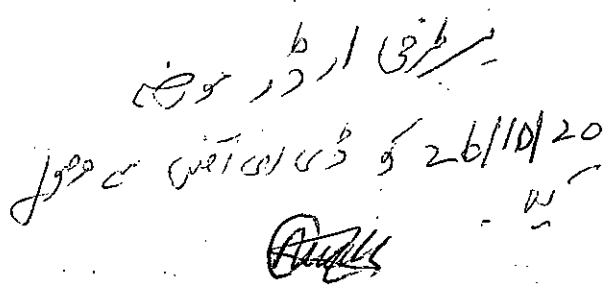 برطرفی ارڈر مورخہ
26/10/20 کو ڈی ای او آفس سے وصول
کیا۔